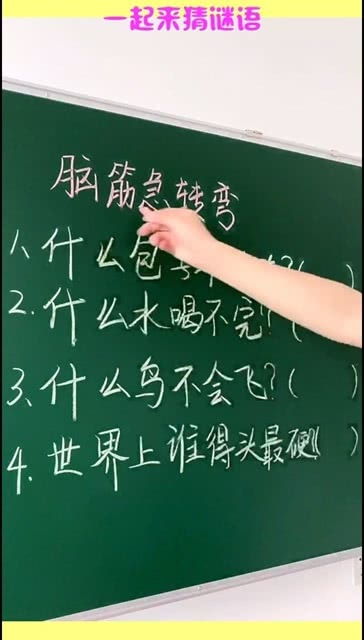 一起来猜谜语
脑筋急转弯
1.什么包
2.什么水喝不完?(
3.什么鸟不会飞?( )
4.世界上谁得头最硬( )